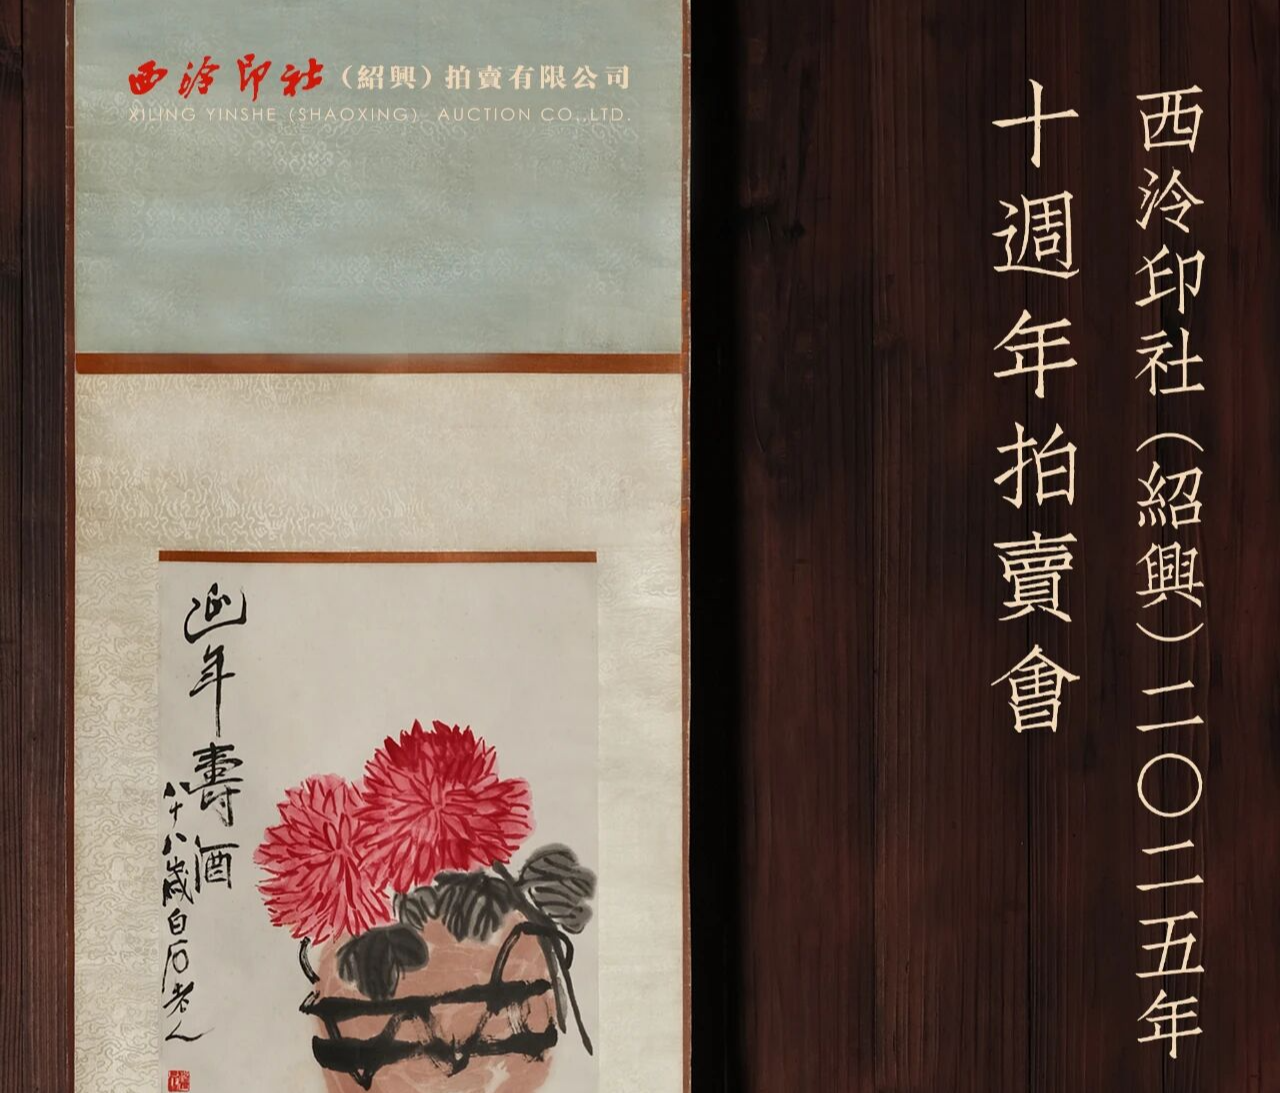 西泠印社（紹興）拍賣有限公司
XILING YINSHE (SHAOXING) AUCTION CO.,LTD.
西泠印社（紹興）二〇二五年
十週年拍賣會
延年壽酒
八十八歲白石老人